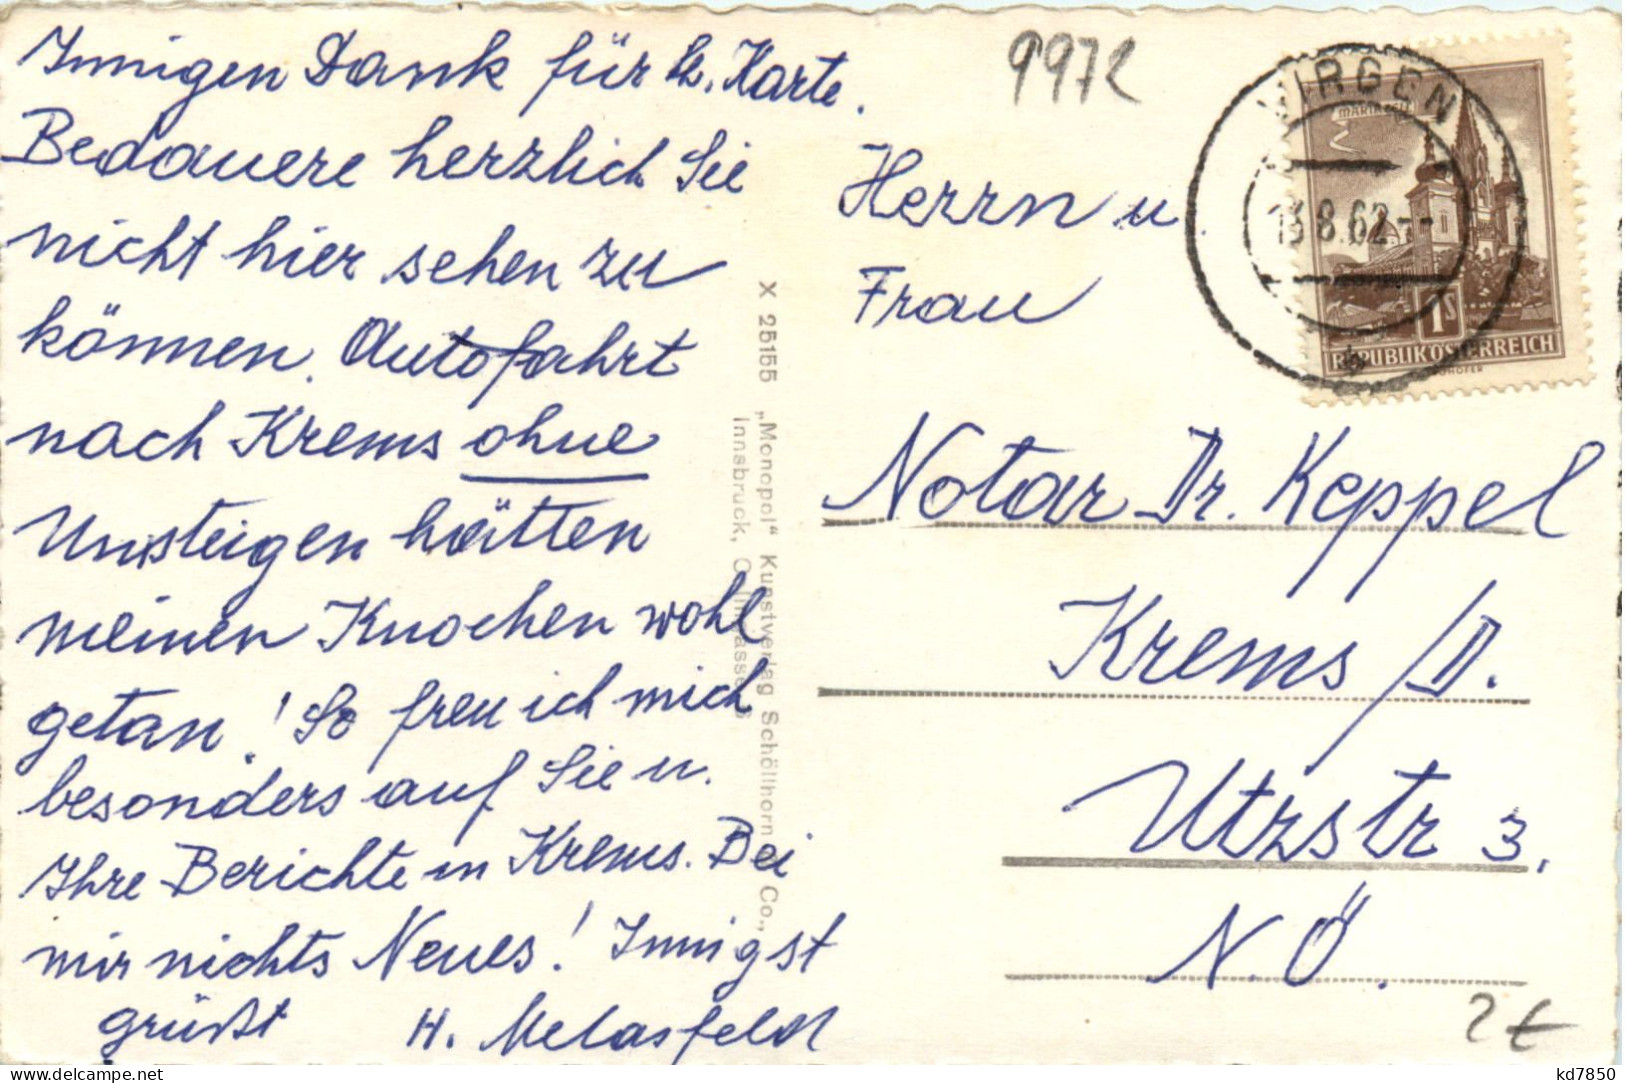 Innigen Dank für lb. Karte.
Bedauere herzlich Sie
nicht hier sehen zu
können. Autofahrt
nach Krems ohne
Umsteigen hätten
meinen Knochen wohl
getan! So freu ich mich
besonders auf Sie u.
Ihre Berichte in Krems. Bei
mir nichts Neues! Innigst
grüßt H.
X 25155 „Monopol“ Kunstverlag Schöllhorn & Co.,
Innsbruck,
9972
VIRGEN
13.8.62--
MARIAZELL
1S
REPUBLIK ÖSTERREICH
Herrn u.
Frau
Notar Dr. Keppel
Krems/D.
Utzstr 3.
N.Ö.
2 €
kd7850